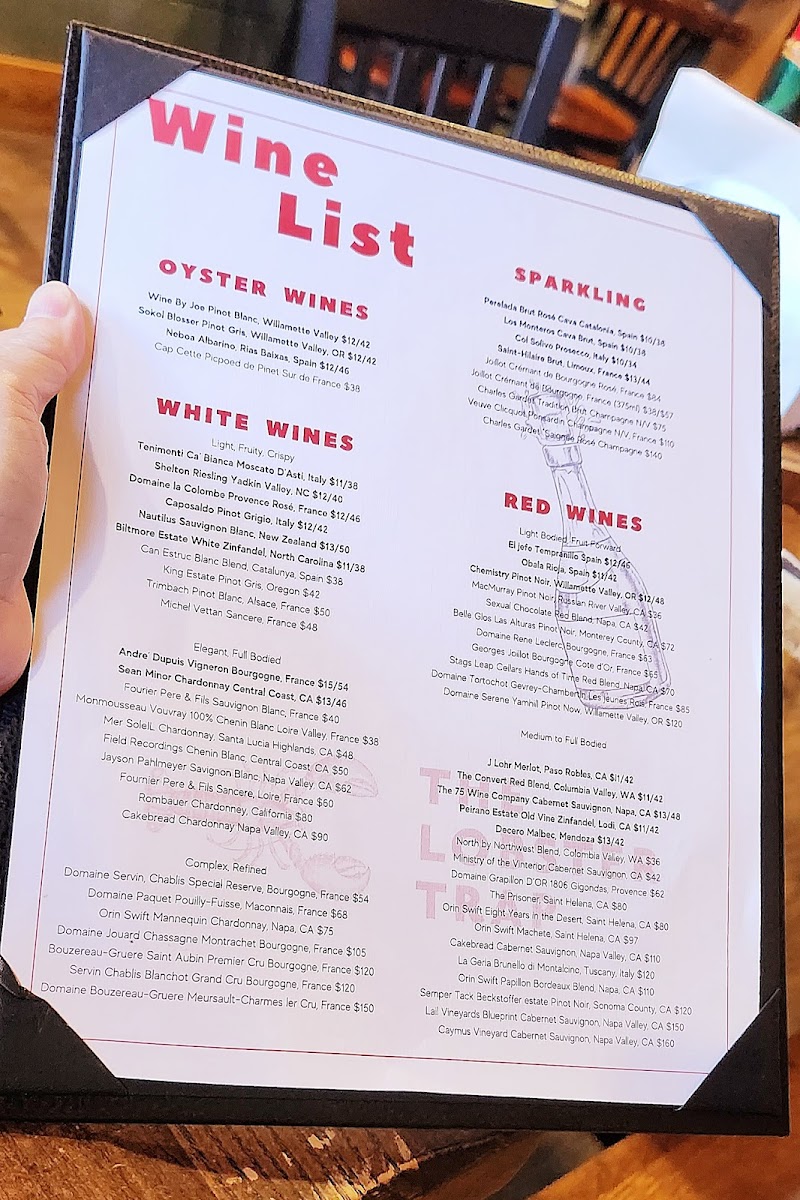 Wine
List
OYSTER WINES
Wine By Joe Pinot Blanc, Willamette Valley $12/42
Sokol Blosser Pinot Gris, Willamette Valley, OR $12/42
Neboa Albarino, Rias Baixas, Spain $12/46
Cap Cette Picpoed de Pinet Sur de France $38
WHITE WINES
Light, Fruity, Crispy
Tenimenti Ca' Bianca Moscato D'Asti, Italy $11/38
Shelton Riesling Yadkin Valley, NC $12/40
Domaine la Colombe Provence Rosé, France $12/46
Caposaldo Pinot Grigio, Italy $12/42
Nautilus Sauvignon Blanc, New Zealand $13/50
Biltmore Estate White Zinfandel, North Carolina $11/38
Can Estruc Blanc Blend, Catalunya, Spain $38
King Estate Pinot Gris, Oregon $42
Trimbach Pinot Blanc, Alsace, France $50
Michel Vettan Sancere, France $48
Elegant, Full Bodied
Andre' Dupuis Vigneron Bourgogne, France $15/54
Sean Minor Chardonnay Central Coast, CA $13/46
Fourier Pere & Fils Sauvignon Blanc, France $40
Monmousseau Vouvray 100% Chenin Blanc Loire Valley, France $38
Mer SoleIL Chardonnay, Santa Lucia Highlands, CA $48
Field Recordings Chenin Blanc, Central Coast, CA $50
Jayson Pahlmeyer Savignon Blanc, Napa Valley, CA $62
Fournier Pere & Fils Sancere, Loire, France $60
Rombauer Chardonney, California $80
Cakebread Chardonnay Napa Valley, CA $90
Complex, Refined
Domaine Servin, Chablis Special Reserve, Bourgogne, France $54
Domaine Paquet Pouilly-Fuisse, Maconnais, France $68
Orin Swift Mannequin Chardonnay, Napa, CA $75
Domaine Jouard Chassagne Montrachet Bourgogne, France $105
Bouzereau-Gruere Saint Aubin Premier Cru Bourgogne, France $120
Servin Chablis Blanchot Grand Cru Bourgogne, France $120
Domaine Bouzereau-Gruere Meursault-Charmes 1er Cru, France $150
SPARKLING
Perelada Brut Rosé Cava Catalonia, Spain $10/38
Los Monteros Cava Brut, Spain $10/38
Col Solivo Prosecco, Italy $10/34
Saint-Hilaire Brut, Limoux, France $13/44
Joillot Crémant de Bourgogne Rosé, France $84
Joillot Crémant de Bourgogne, France (375ml) $38/$67
Charles Gardet Tradition Brut Champagne N/V $75
Veuve Clicquot Ponsardin Champagne N/V, France $110
Charles Gardet Saignée Rosé Champagne $140
RED WINES
Light Bodied, Fruit Forward
El jefe Tempranillo Spain $12/46
Obala Rioja, Spain $11/42
Chemistry Pinot Noir, Willamette Valley, OR $12/48
MacMurray Pinot Noir, Russian River Valley, CA $36
Sexual Chocolate Red Blend, Napa, CA $42
Belle Glos Las Alturas Pinot Noir, Monterey County, CA $72
Domaine Rene Leclerc Bourgogne, France $63
Georges Joillot Bourgogne Cote d'Or, France $65
Stags Leap Cellars Hands of Time Red Blend, Napa, CA $70
Domaine Tortochot Gevrey-Chambertin Les jeunes Rois, France $85
Domaine Serene Yamhil Pinot Now, Willamette Valley, OR $120
Medium to Full Bodied
J Lohr Merlot, Paso Robles, CA $11/42
The Convert Red Blend, Columbia Valley, WA $11/42
The 75 Wine Company Cabernet Sauvignon, Napa, CA $13/48
Peirano Estate Old Vine Zinfandel, Lodi, CA $11/42
Decero Malbec, Mendoza $13/42
North by Northwest Blend, Colombia Valley, WA $36
Ministry of the Vinterior Cabernet Sauvignon, CA $42
Domaine Grapillon D'OR 1806 Gigondas, Provence $62
The Prisoner, Saint Helena, CA $80
Orin Swift Eight Years in the Desert, Saint Helena, CA $80
Orin Swift Machete, Saint Helena, CA $97
Cakebread Cabernet Sauvignon, Napa Valley, CA $110
La Geria Brunello di Montalcino, Tuscany, Italy $120
Orin Swift Papillon Bordeaux Blend, Napa, CA $110
Semper Tack Beckstoffer estate Pinot Noir, Sonoma County, CA $120
Lail Vineyards Blueprint Cabernet Sauvignon, Napa Valley, CA $150
Caymus Vineyard Cabernet Sauvignon, Napa Valley, CA $160
THE
LOBSTER
TRAP